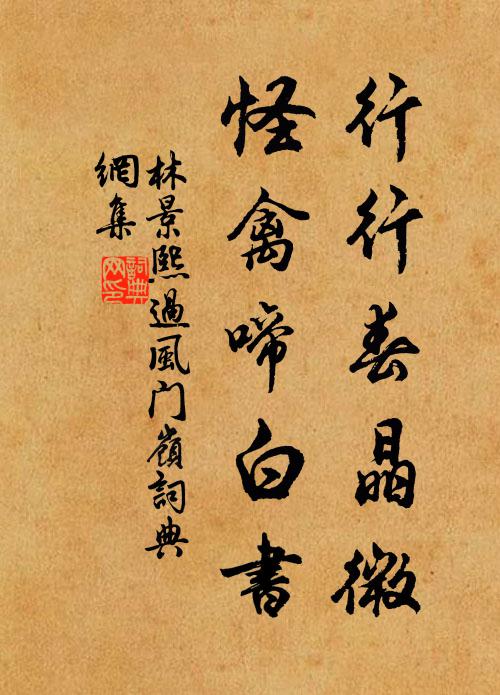 行行春晶微
怪禽啼白書
林景熙過風门嶺詞典
網集
詞典
网印